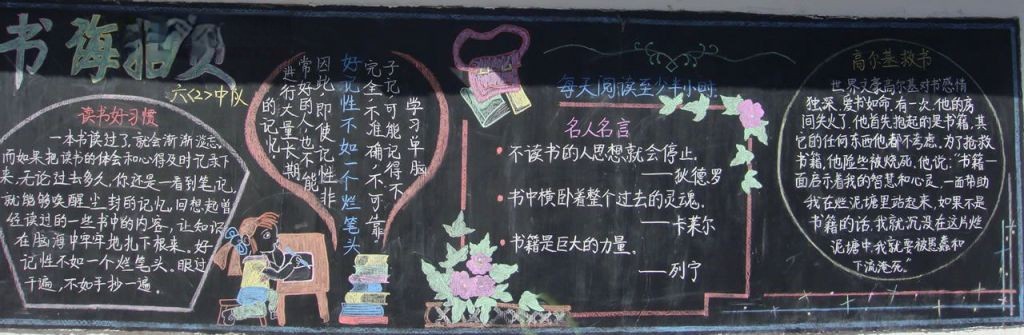 书海拍贝
六<2>中队
读书好习惯
一本书读过了,就会渐渐淡忘,
而如果把读书的体会和心得及时记录下
来,无论过去多久,你还是一看到笔记,
就能够唤醒尘封的记忆,回想起曾
经读过的一些书中的内容,让知识
在脑海中牢牢地扎下根来。好
记性不如一个烂笔头。眼过
千遍,不如手抄一遍。
学习单脑
子记可能记得不
完全、不准确、不可靠
好记性不如一个烂笔头
因此,即使记性非
常好的人,也不能
进行大量、长期
的记忆。
每天阅读至少半小时
名人名言
·不读书的人思想就会停止。
——狄德罗
·书中横卧着整个过去的灵魂。
——卡莱尔
·书籍是巨大的力量。
——列宁
高尔基救书
世界文豪高尔基对书感情
独深,爱书如命,有一次,他的房
间失火了,他首先抱起的是书籍,其
它的任何东西他都不考虑。为了抢救
书籍,他险些被烧死,他说:"书籍一
面启示着我的智慧和心灵,一面帮助
我在烂泥塘里站起来,如果不是
书籍的话,我就沉没在这片烂
泥塘中,我就要被愚蠢和
下流淹死。"